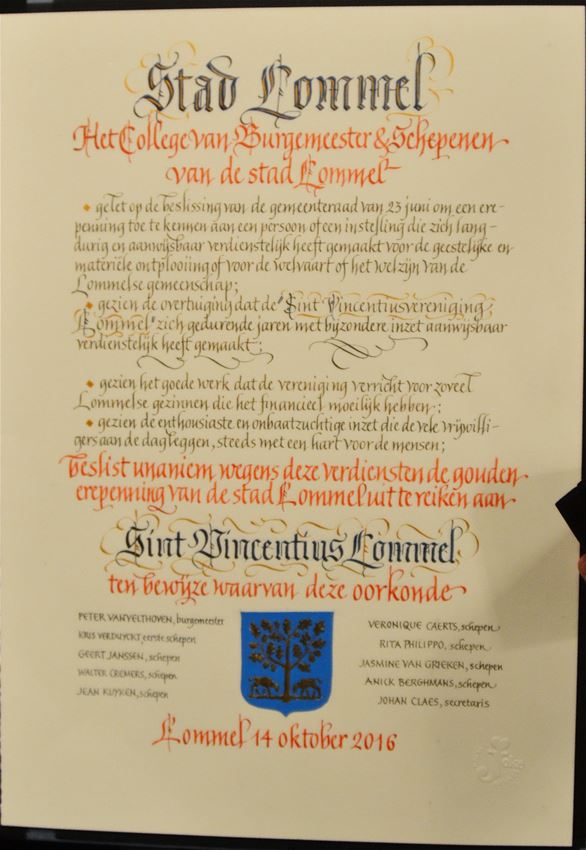 Stad Lommel
Het College van Burgemeester & Schepenen
van de stad Lommel
gelet op de beslissing van de gemeenteraad van 23 juni om een ere-
penning toe te kennen aan een persoon of een instelling die zich lang-
durig en aanwijsbaar verdienstelijk heeft gemaakt voor de geestelijke en
materiële ontplooiing of voor de welvaart of het welzijn van de
Lommelse gemeenschap;
gezien de overtuiging dat de "Sint Vincentiusvereniging
Lommel" zich gedurende jaren met bijzondere inzet aanwijsbaar
verdienstelijk heeft gemaakt;
gezien het goede werk dat de vereniging verricht voor zoveel
Lommelse gezinnen die het financieel moeilijk hebben;
gezien de enthousiaste en onbaatzuchtige inzet die de vele vrijwilli-
gers aan de dag leggen, steeds met een hart voor de mensen;
beslist unaniem wegens deze verdiensten de gouden
erepenning van de stad Lommel uit te reiken aan
Sint Vincentius Lommel
ten bewijze waarvan deze oorkonde
PETER VANVELTHOVEN, burgemeester
KRIS VERDUYCKT, eerste schepen
GEERT JANSSEN, schepen
WALTER CREMERS, schepen
JEAN KUYKEN, schepen
VERONIQUE CAERTS, schepen
RITA PHILIPPO, schepen
JASMINE VAN GRIEKEN, schepen
ANICK BERGHMANS, schepen
JOHAN CLAES, secretaris
Lommel 14 oktober 2016